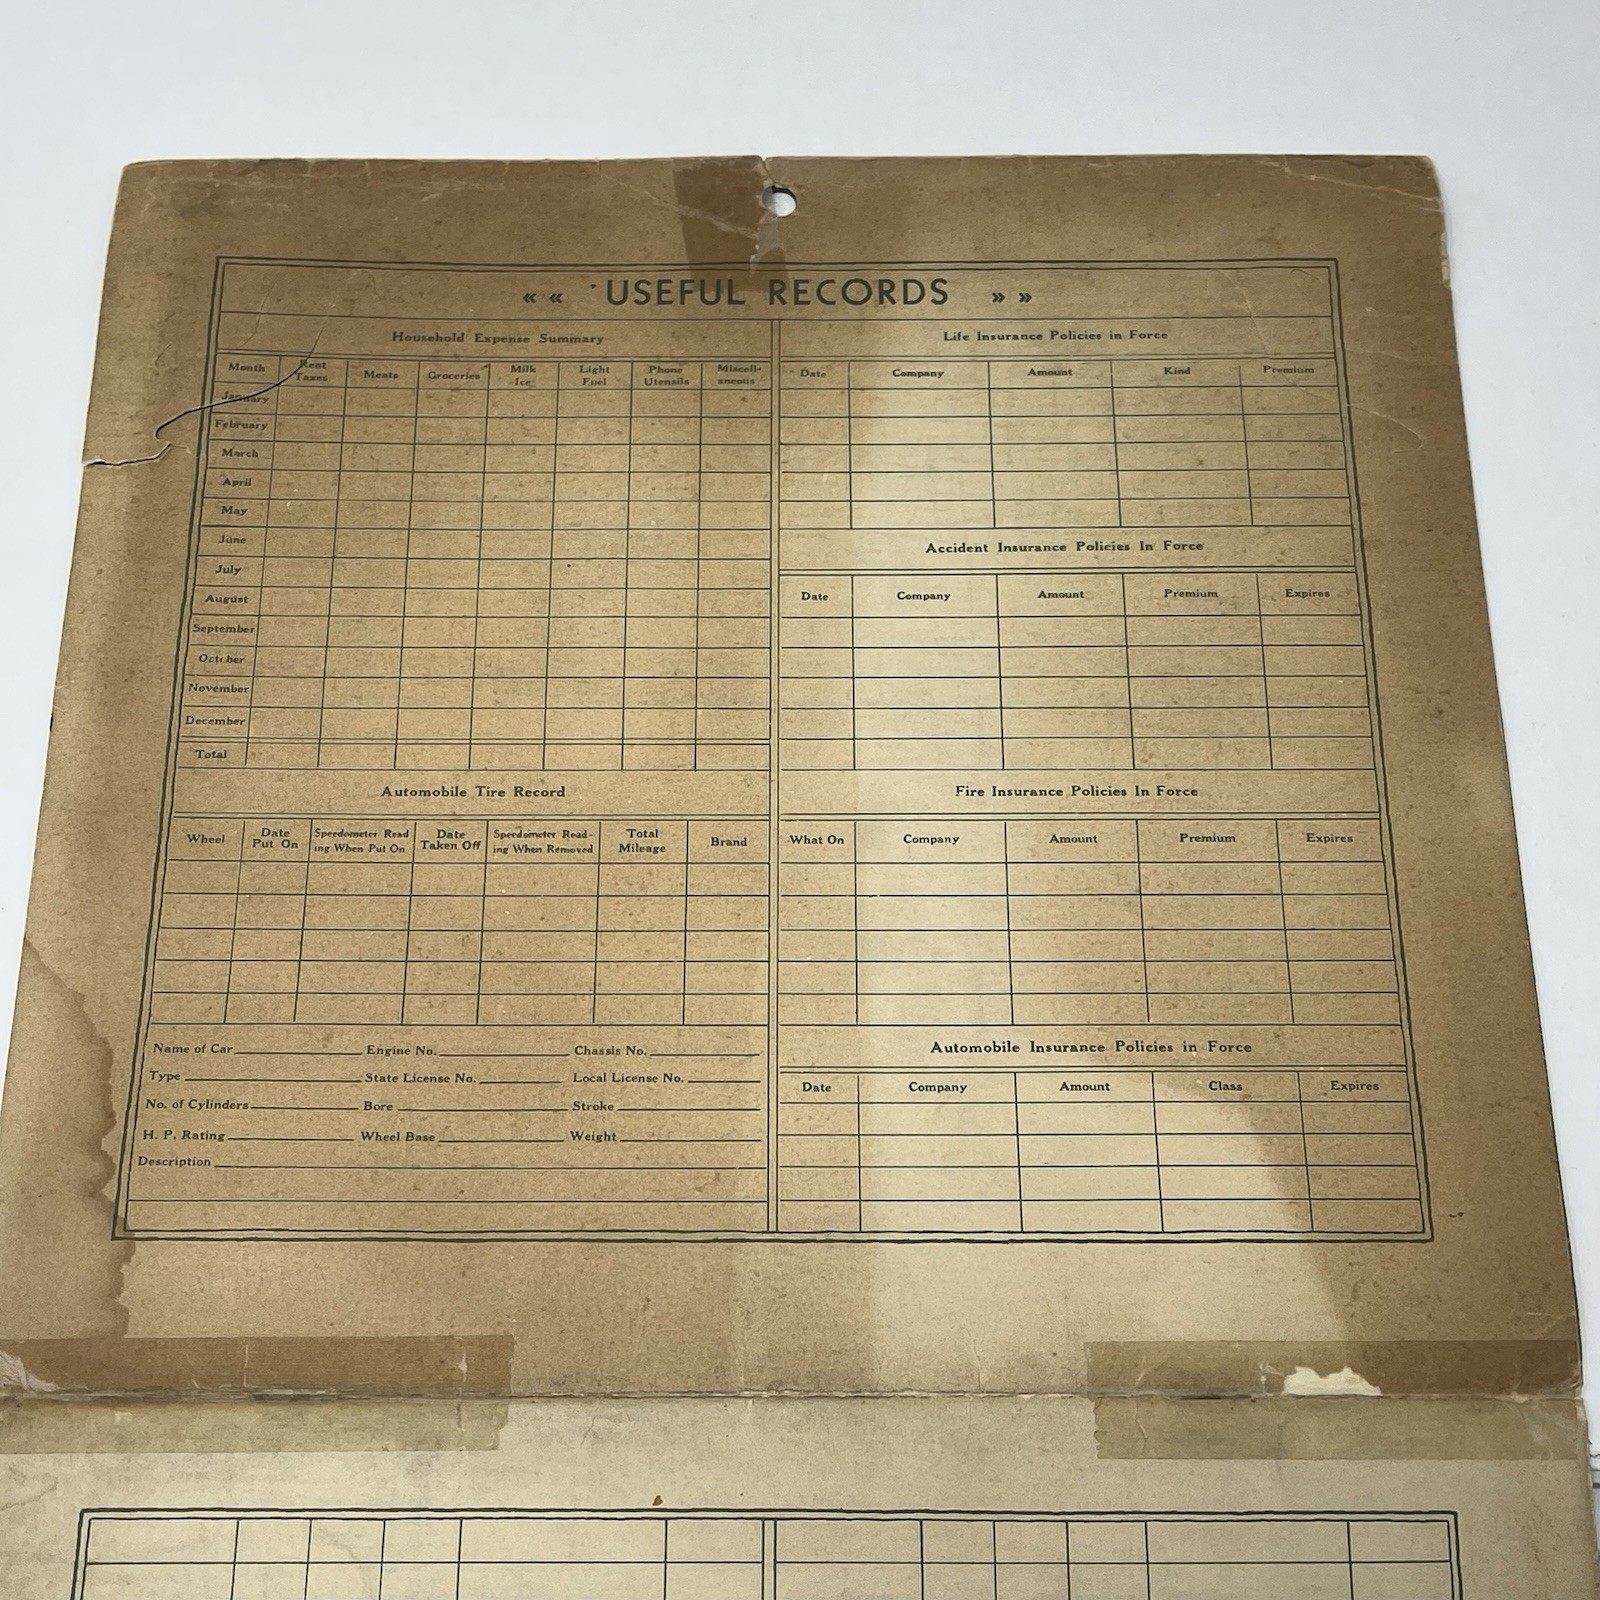 « « USEFUL RECORDS » »
Household Expense Summary
Month Rent Taxes Meats Groceries Milk Ice Light Fuel Phone Utensils Miscell-aneous
January
February
March
April
May
June
July
August
September
October
November
December
Total
Automobile Tire Record
Wheel Date Put On Speedometer Read ing When Put On Date Taken Off Speedometer Read-ing When Removed Total Mileage Brand
Name of Car Engine No. Chassis No.
Type State License No. Local License No.
No. of Cylinders Bore Stroke
H. P. Rating Wheel Base Weight
Description
Life Insurance Policies in Force
Date Company Amount Kind Premium
Accident Insurance Policies In Force
Date Company Amount Premium Expires
Fire Insurance Policies In Force
What On Company Amount Premium Expires
Automobile Insurance Policies in Force
Date Company Amount Class Expires